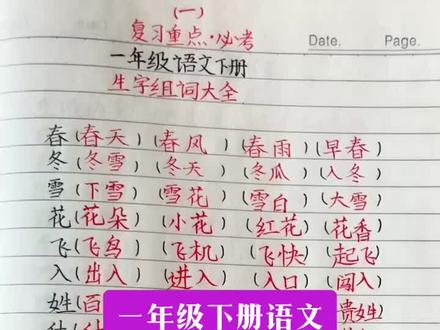 (一)
复习重点·必考
Date. Page.
一年级语文下册
生字组词大全
春(春天)(春风)(春雨)(早春)
冬(冬雪)(冬天)(冬瓜)(入冬)
雪(下雪)(雪花)(雪白)(大雪)
花(花朵)(小花)(红花)(花香)
飞(飞鸟)(飞机)(飞快)(起飞)
入(出入)(进入)(入口)(闯入)
姓(百 贵姓)
一年级下册语文